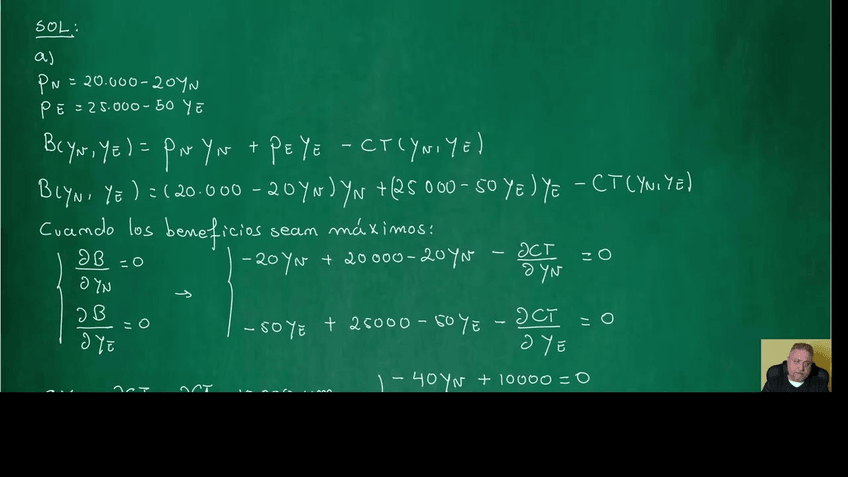 SOL:
a)
PN = 20.000 - 20 YN
PE = 25.000 - 50 YE
B(YN, YE) = PN YN + PE YE - CT(YN, YE)
B(YN, YE) = (20.000 - 20 YN) YN + (25 000 - 50 YE) YE - CT(YN, YE)
Cuando los beneficios sean máximos:
∂B/∂YN = 0 → -20 YN + 20 000 - 20 YN - ∂CT/∂YN = 0
∂B/∂YE = 0 -50 YE + 25000 - 50 YE - ∂CT/∂YE = 0
- 40 YN + 10000 = 0